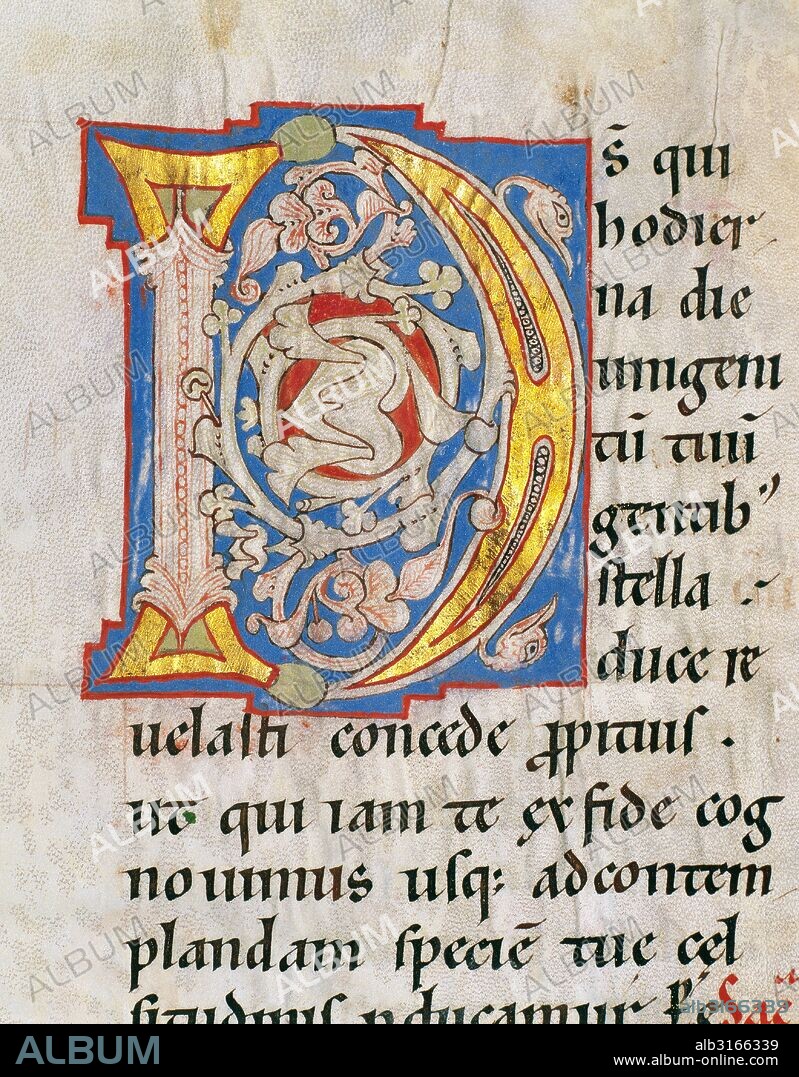 D
s̄ qui
hodier
na die
unigeni
tū tuū
gentib᾿᾿
stella
duce re
uelasti concede ꝓpitius .
ut qui iam te ex fide cog
nouimus usq: ad contem
plandam speciē tue cel
situdinis ꝑducamur
alb3166339
ALBUM
alb3166339
www.album-online.com